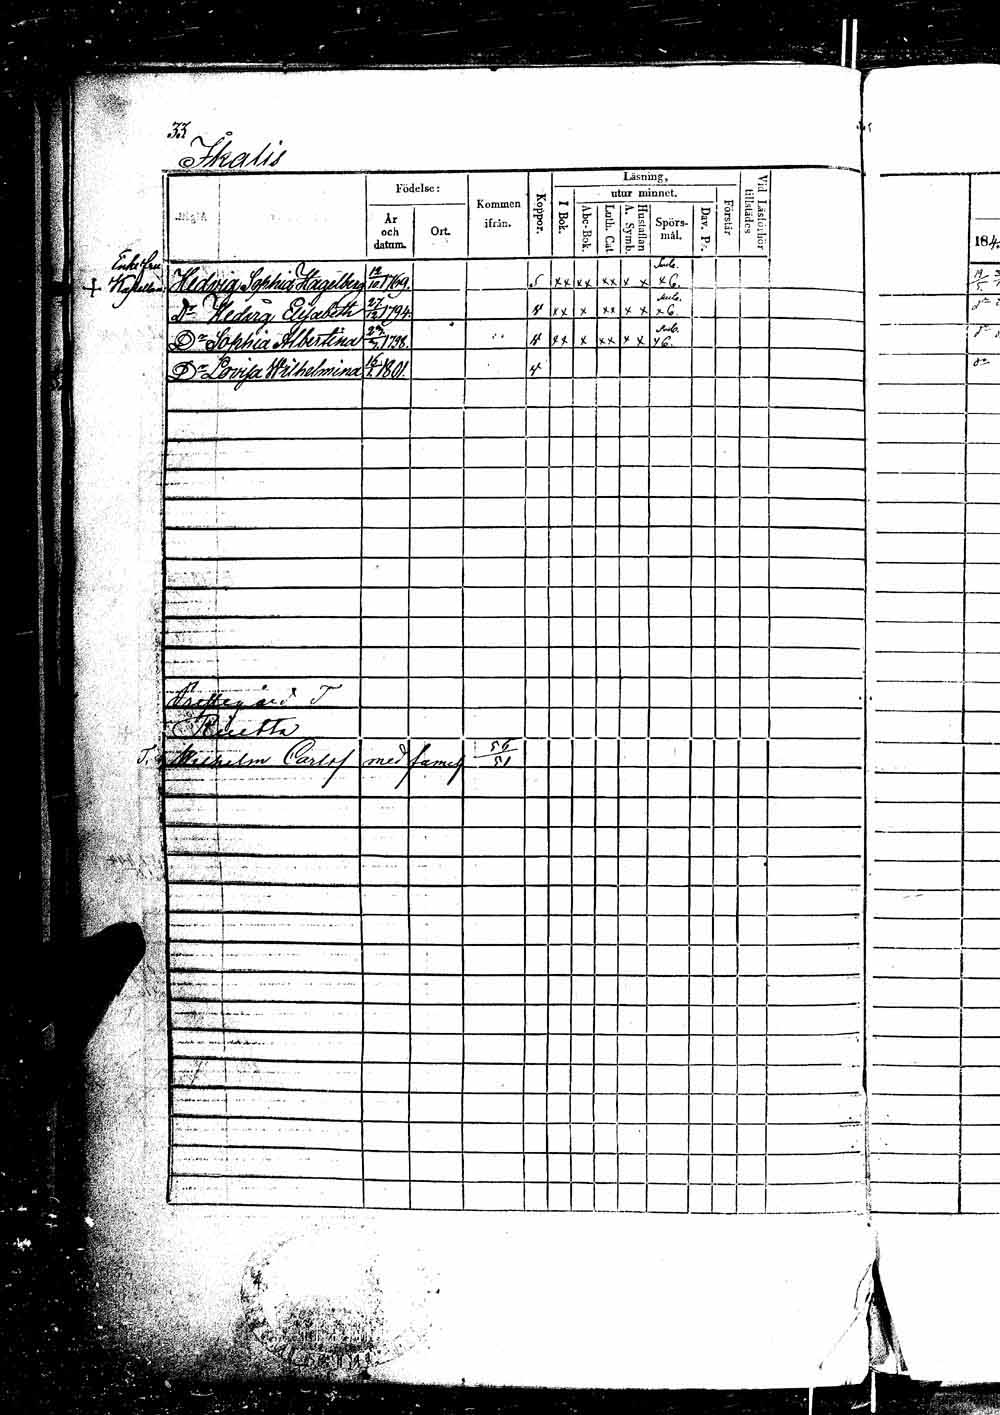 33
Åkalis
Födelse:
År och datum.
Ort.
Kommen ifrån.
Koppor.
Läsning,
utur minnet.
I Bok.
Abc-Bok.
Luth. Cat.
A. Symb.
Hustaflan
Spörs-mål.
Dav. Ps.
Förstår
Vid Läsförhör tillstädes
184
Enkefru
+ Hedvig Sophia Hagelberg 12/10 1769. 5 xx xx xx x x x6.
Dr Hedvig Elisabeth 27/12 1794. 4 xx x xx x x x6.
Dr Sophia Albertina 1798. 4 xx x xx x x x6.
Dr Lovisa Wilhelmina 1801. 4
Prestegård T
T. Wilhelm Carlof med famil 56/51